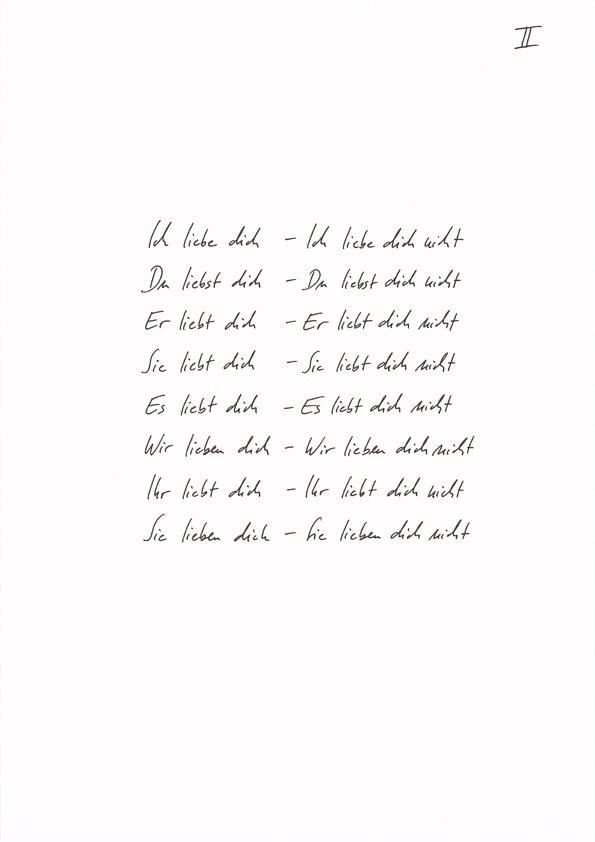 II
Ich liebe dich – Ich liebe dich nicht
Du liebst dich – Du liebst dich nicht
Er liebt dich – Er liebt dich nicht
Sie liebt dich – Sie liebt dich nicht
Es liebt dich – Es liebt dich nicht
Wir lieben dich – Wir lieben dich nicht
Ihr liebt dich – Ihr liebt dich nicht
Sie lieben dich – Sie lieben dich nicht